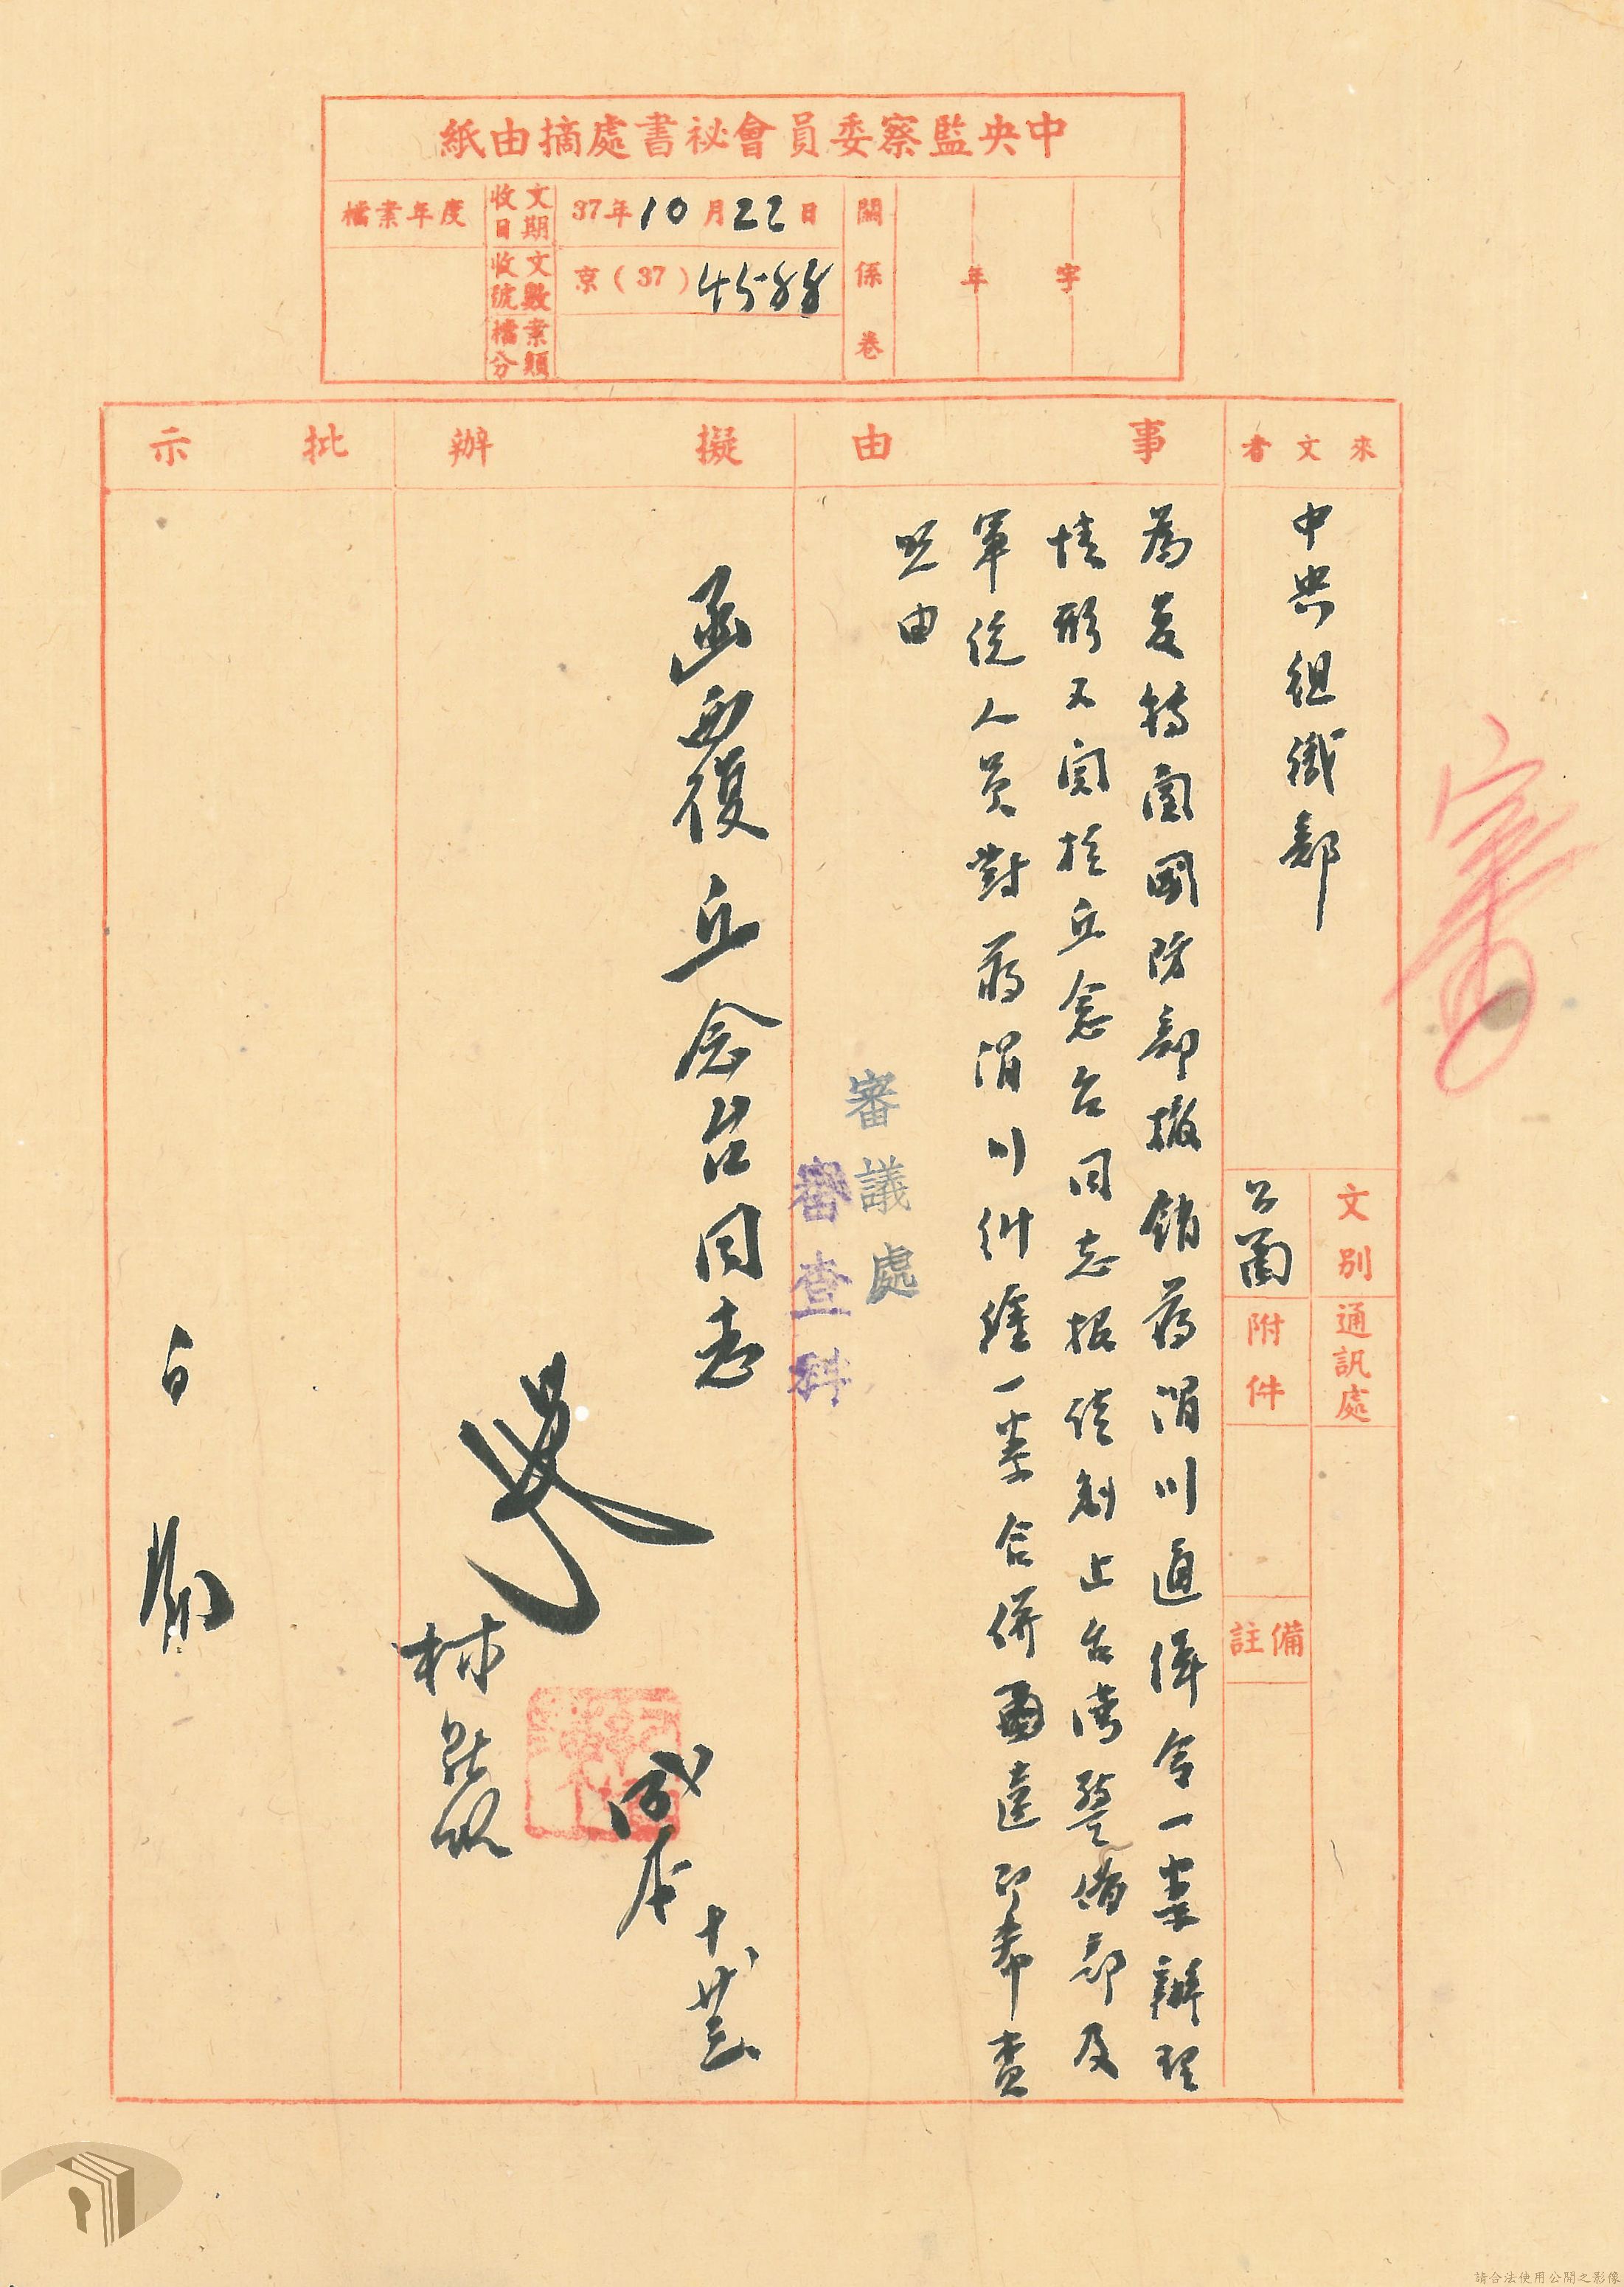 中央監察委員會祕書處摘由紙
檔案年度
收文日期
37年10月22日
收文號數
京(37)4588
檔案分類
關係卷
年
字
來文者
事由
擬辦
批示
中央組織部
文別
公函
通訊處
附件
備註
為复特函國防部撤銷蔣渭川通緝令一案辦理
情形又関於丘念台同志報信制止台灣警備部及
軍統人員對蔣渭川糾纏一案合併函達即希查
照由
審議處
審查科
函西復丘念台同志
林
十、廿三
審
請合法使用公開之影像